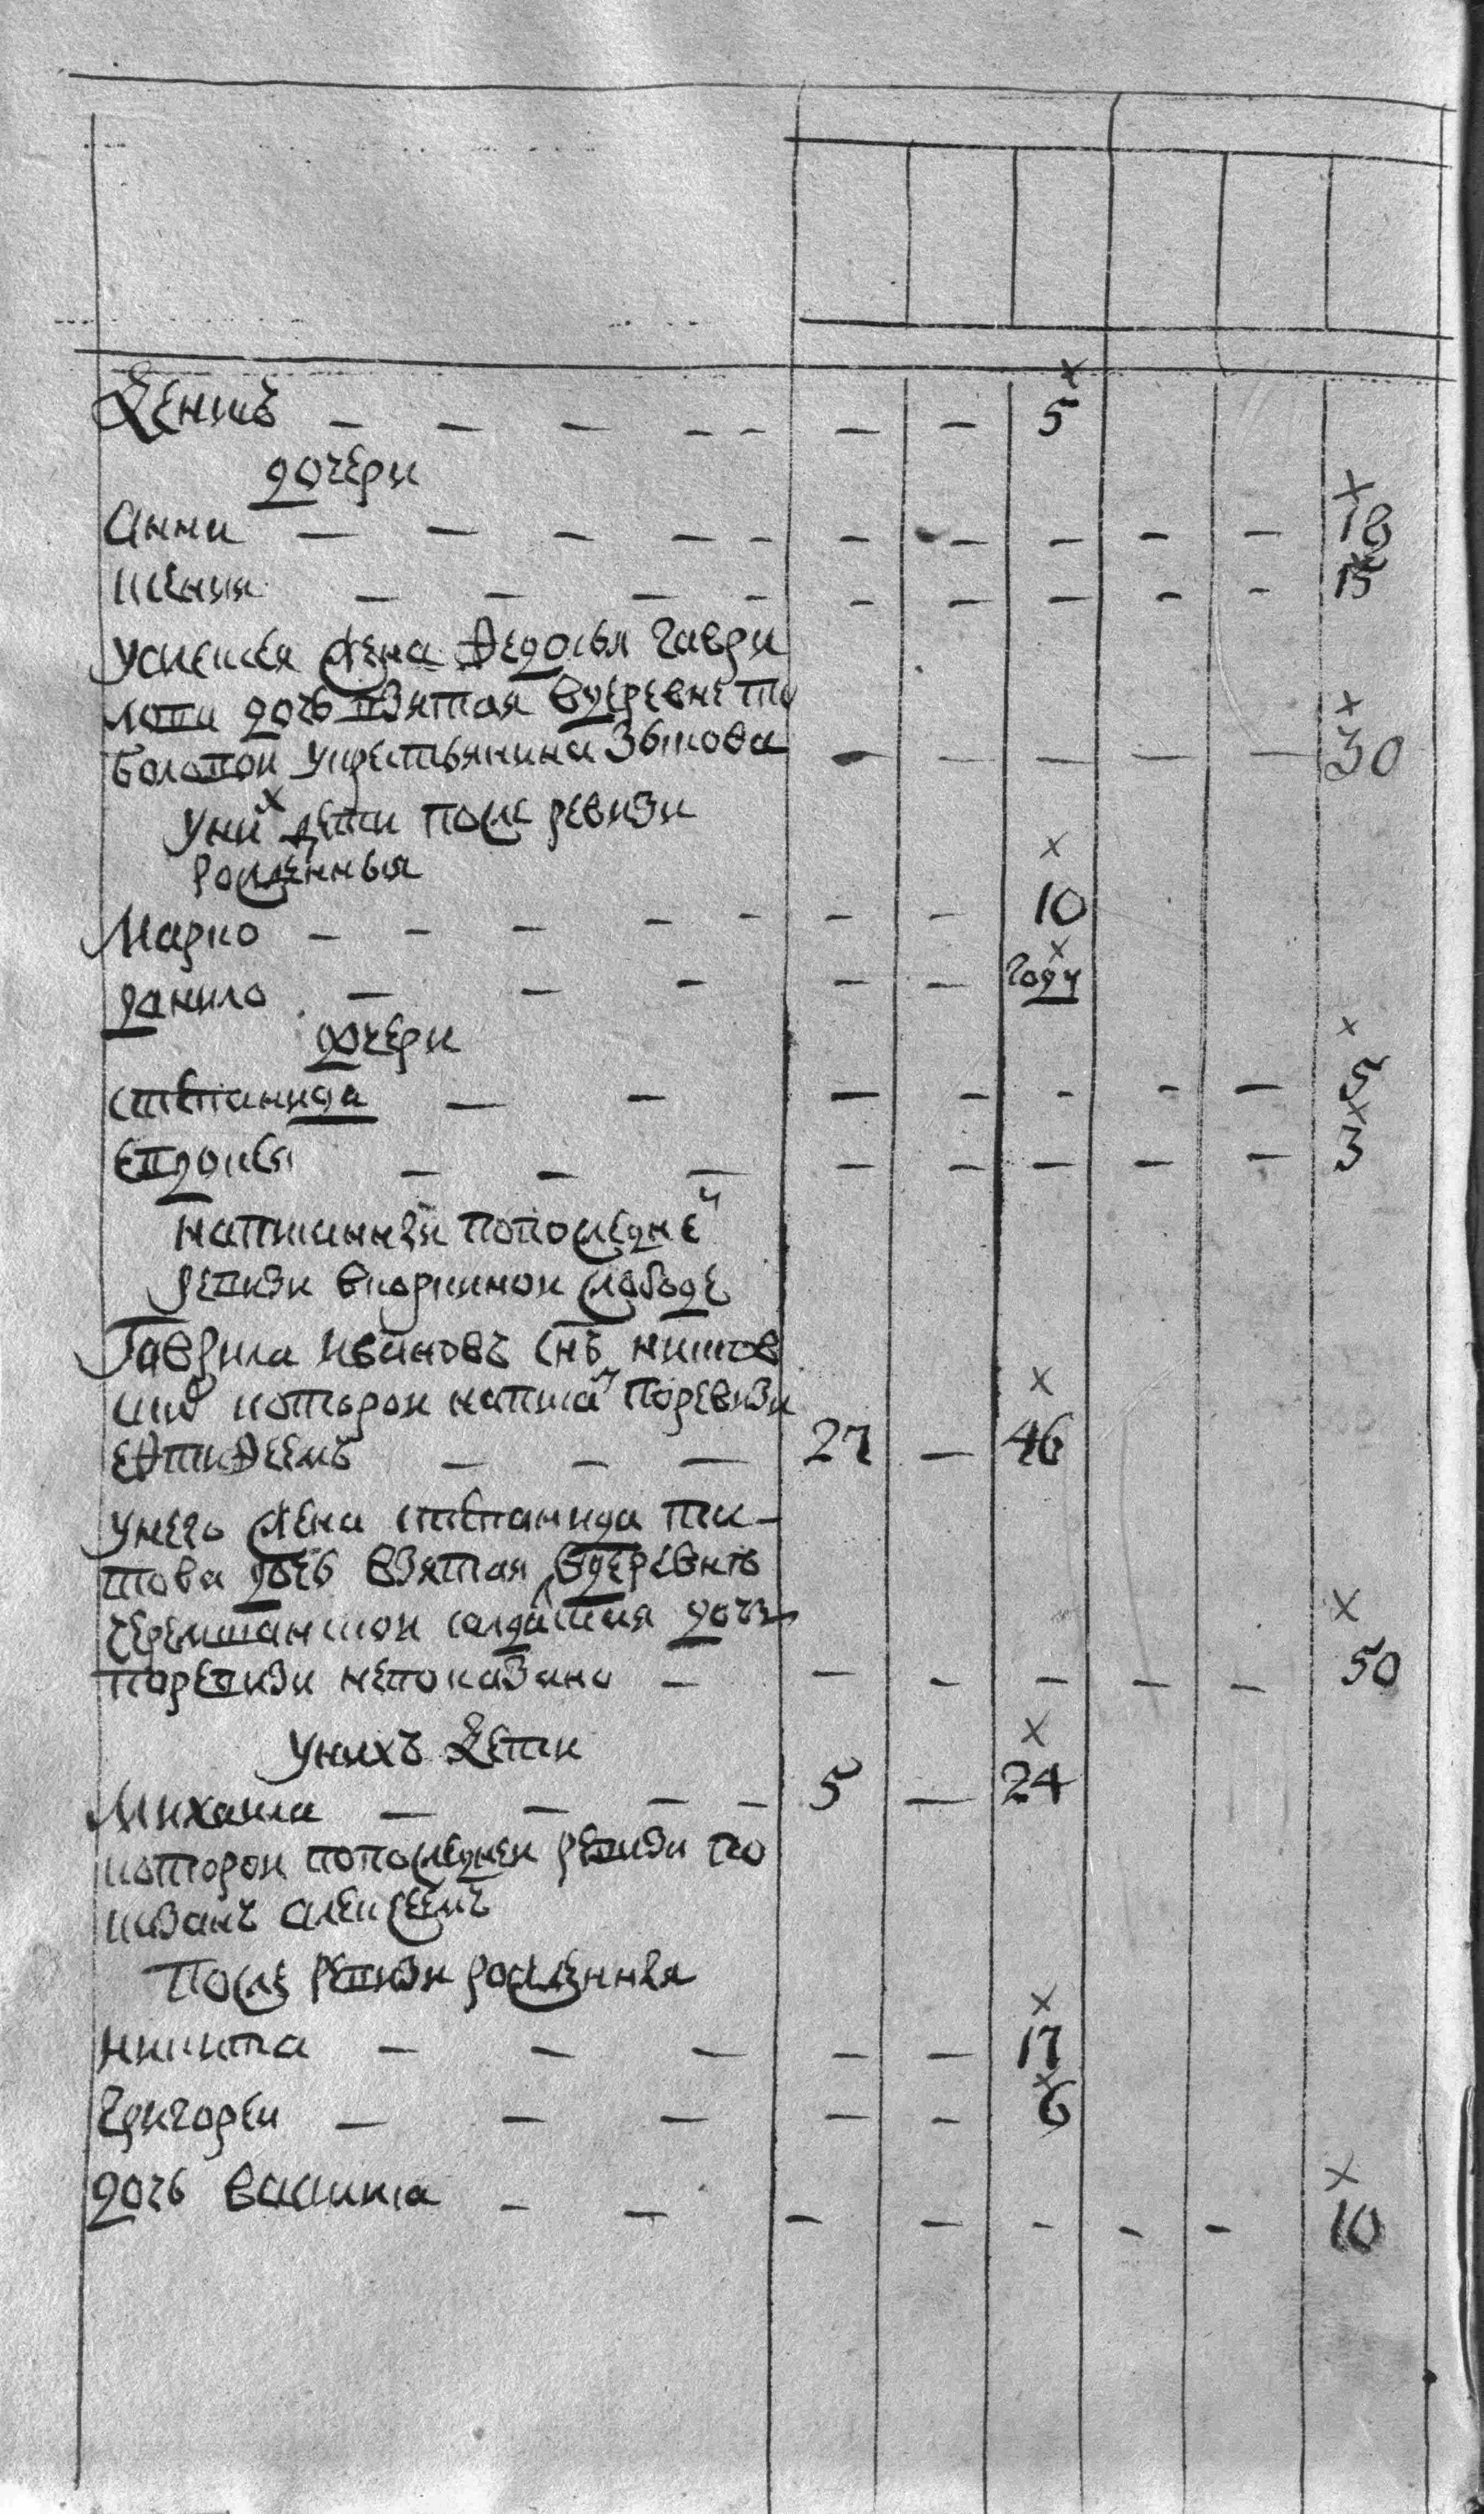 Денисъ — — — — — — — 5
дочери
Анна — — — — — — — — — — 18
Ксения — — — — — — — — — 15
Усисея жена Федосья гаври
лова дочь взятая вдеревне
болотой укрестьянина Зыкова — — — — — 30
Уних дети после ревизи
рожденныя
Марко — — — — — — — 10
данило — — — — — году
дочери
степанида — — — — — — — 5
Евдокея — — — — — — — — 3
написанный попоследней
ревизи слободе
Гаврила Ивановъ снъ
которой написан поревизи
ефтифеемъ — — — 27 — 46
Унего жена степанида ти-
това дочь взятая вдеревнѣ
черемшанской салдацкая дочь
поревизи непоказана — — — — — — 50
Унихъ Дети
Михаила — — — — 5 — 24
которой попоследней ревизи по
казанъ алексеемъ
После ревизи рожденныя
никита — — — — — 17
Григореи — — — — — 6
дочь василиса — — — — — — — 10